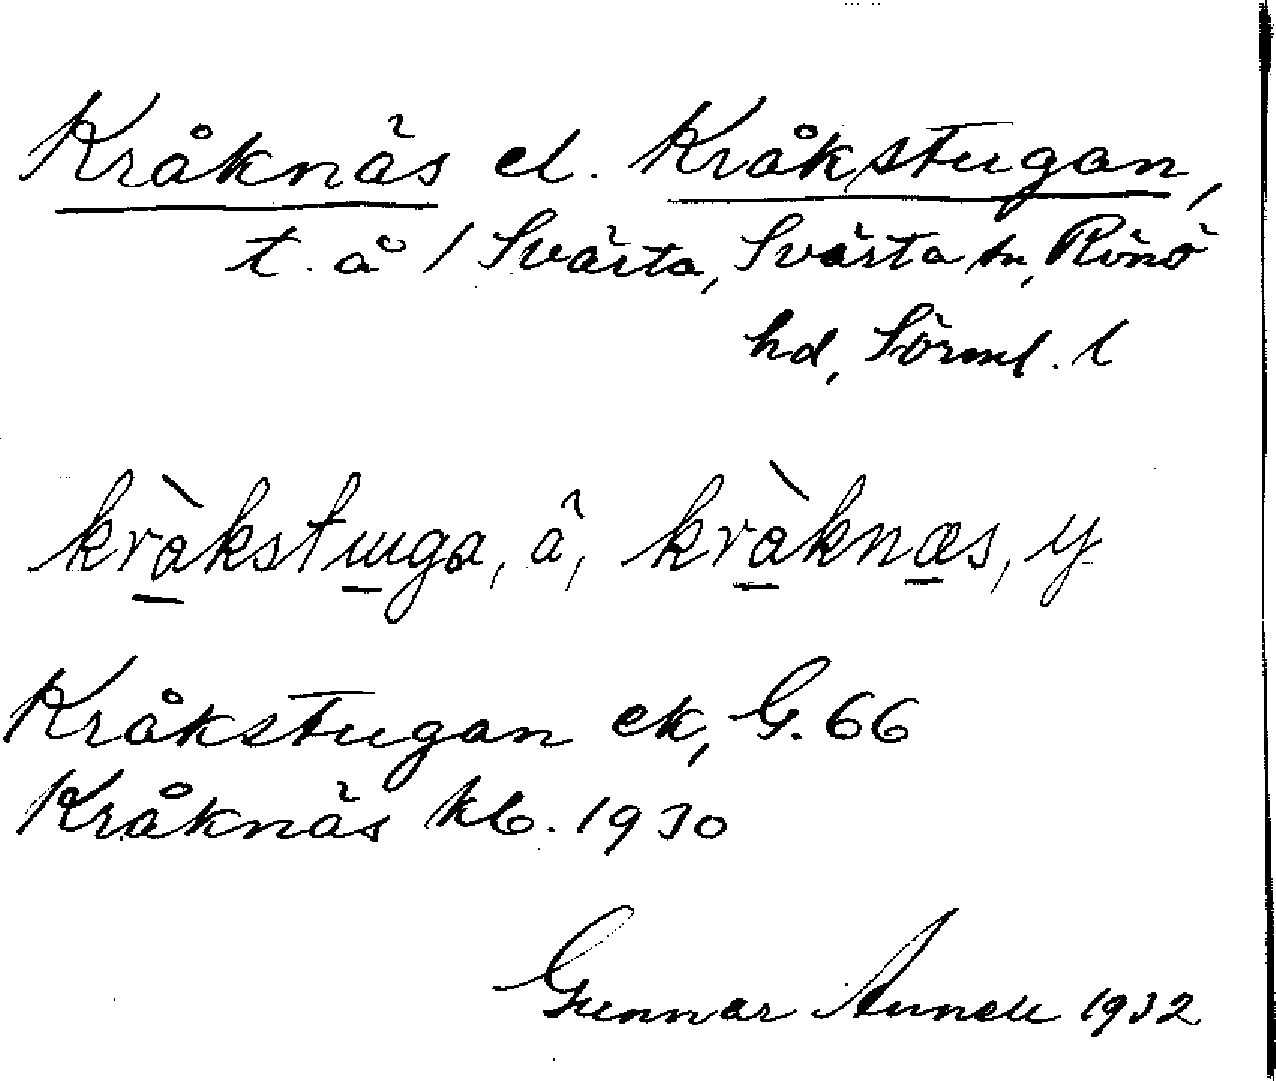 Kråknäs el. Kråkstugan,
t. å / Svärta, Svärta sn, Rönö
hd, Sörml. l
kràkstuga, ä, kràknæs, y
Kråkstugan ek, G. 66
Kråknäs kb. 1930
Gunnar Annell 1932